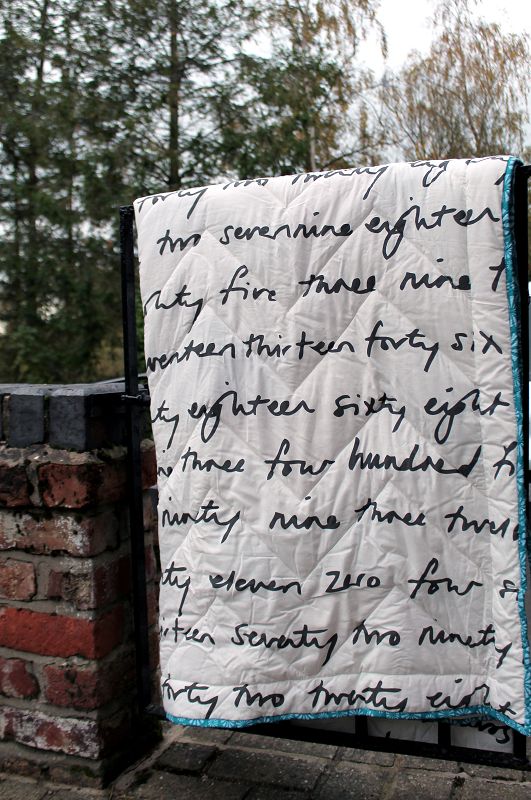 forty two twenty eight
two seven nine eighteen
five three nine
thirteen forty six
eighteen sixty eight
three four hundred
ninety nine three
eleven zero four
seventy two ninety
forty two twenty eight